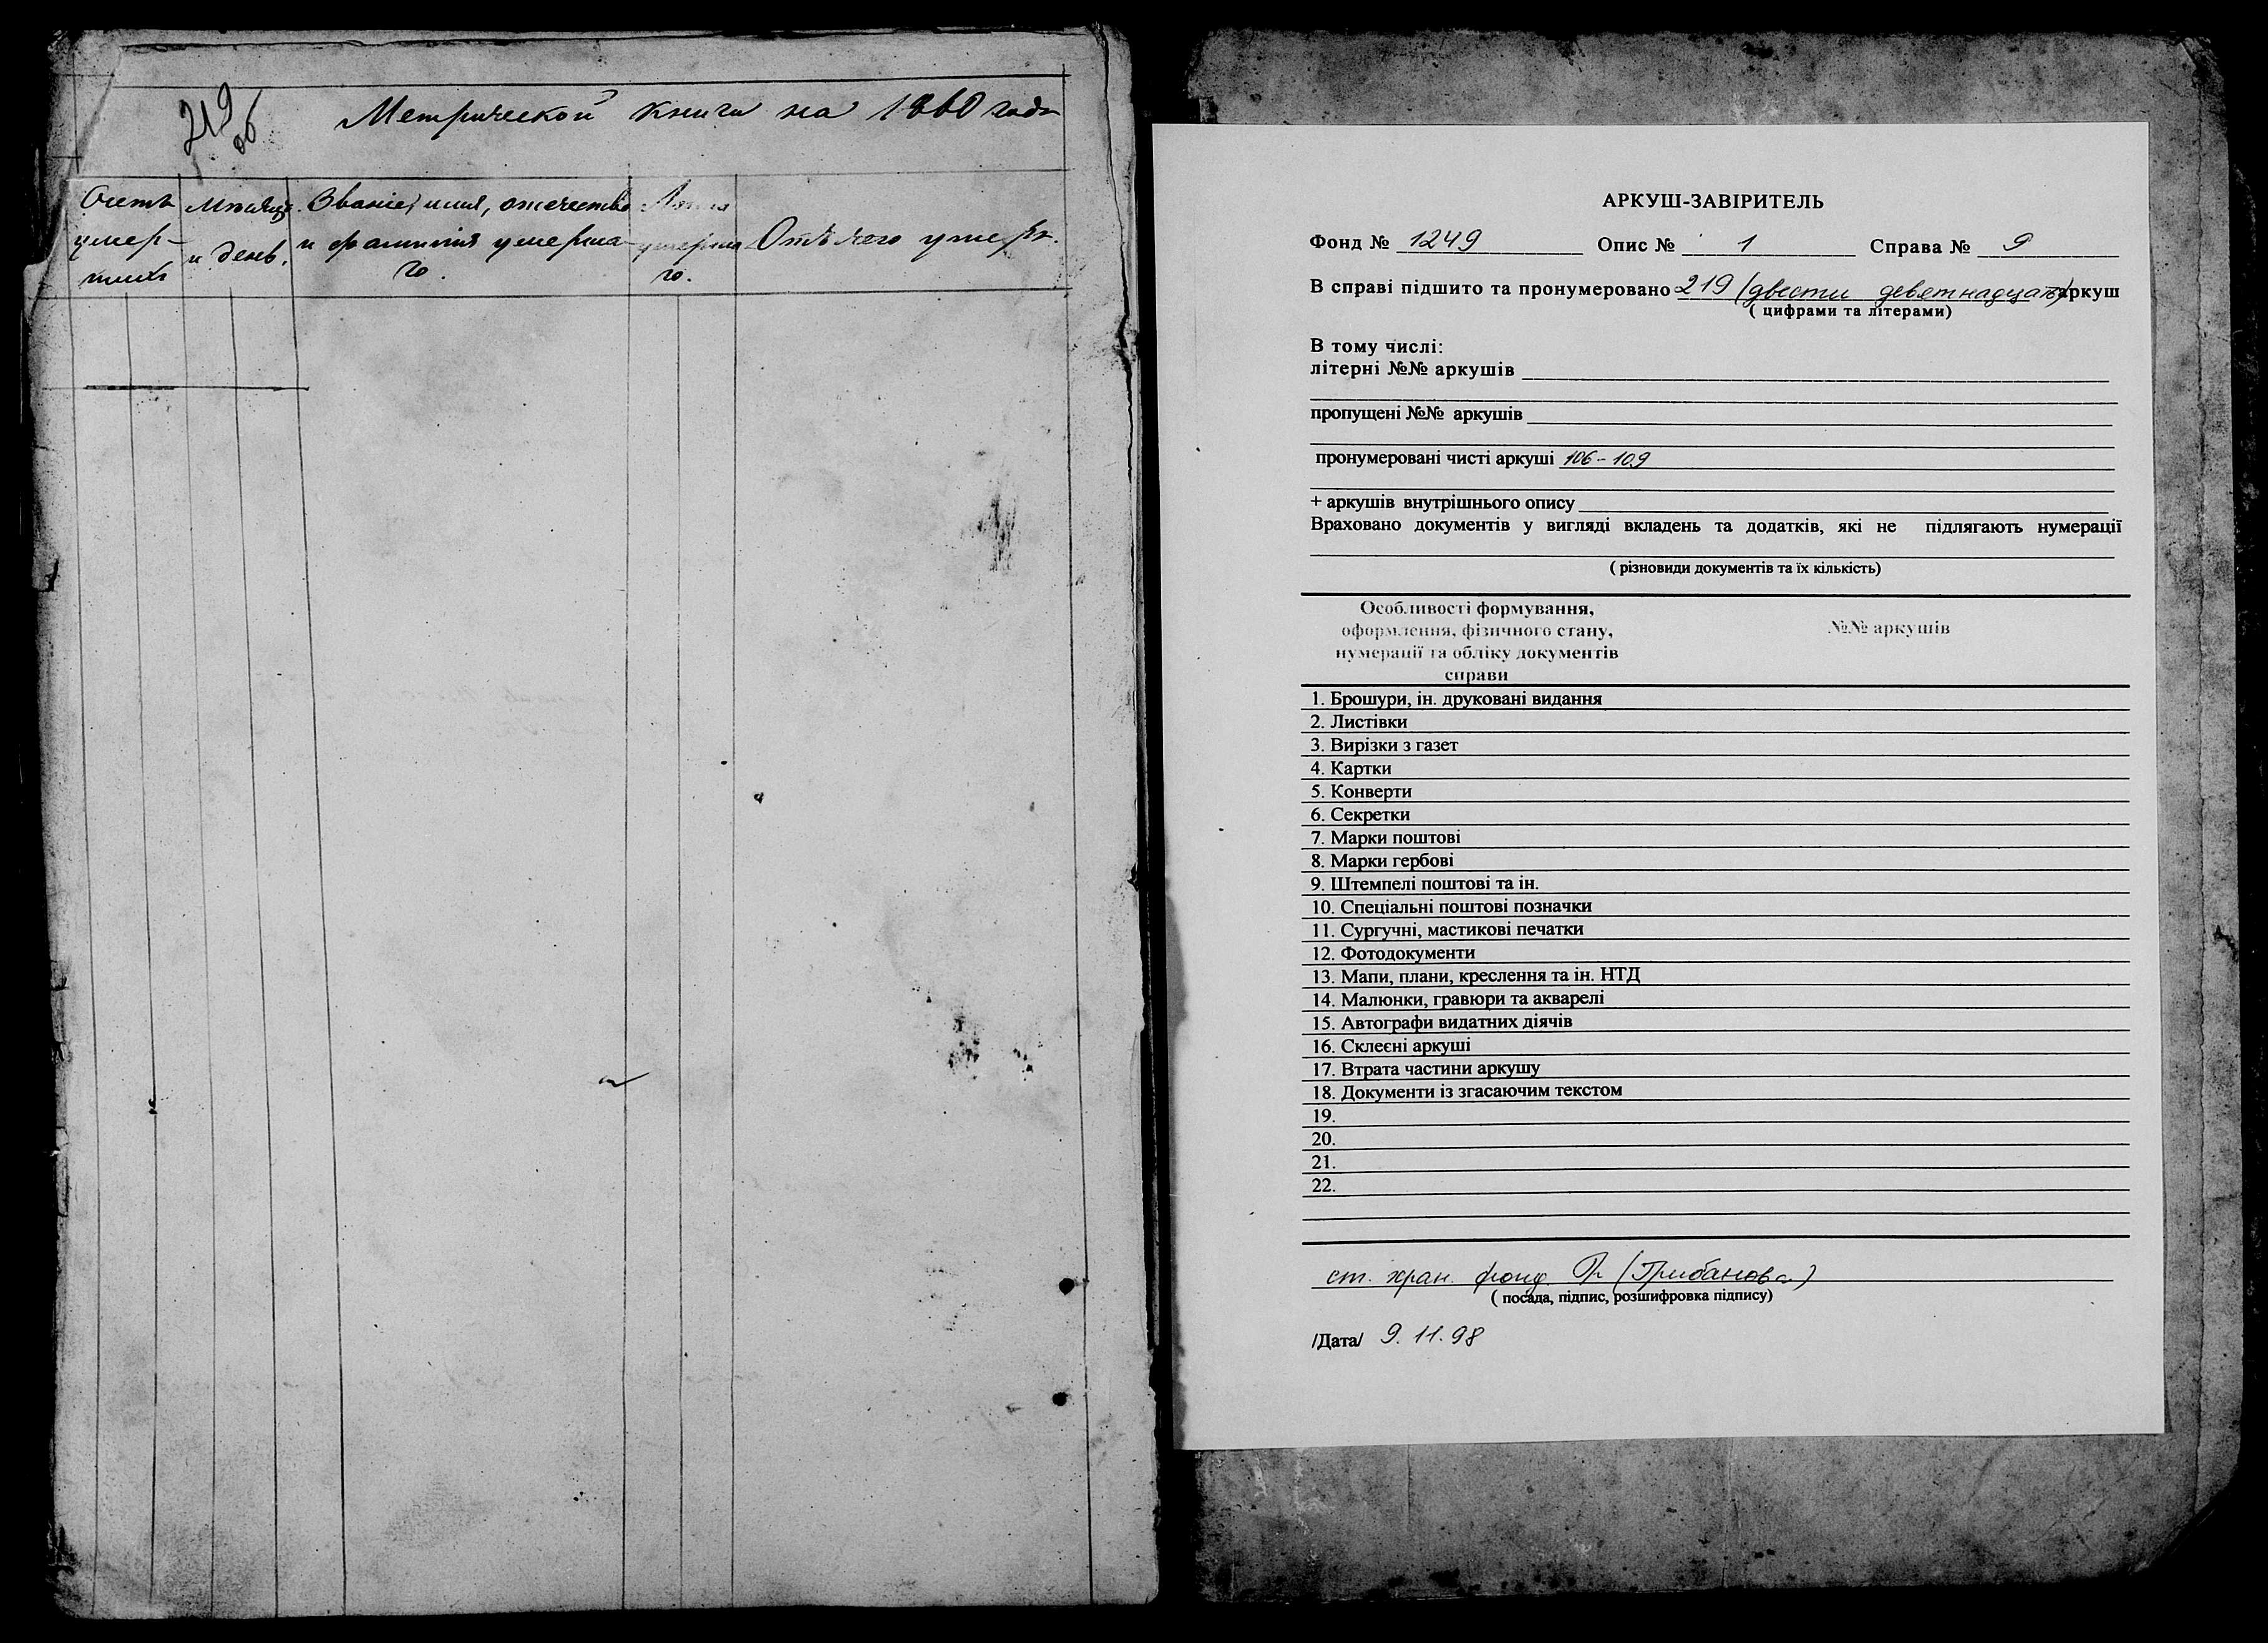 219
об
Метрической книги на 1860 года
Счетъ
умер-
шихъ
Мѣсяцъ
и день.
Званіе, имя, отчество
и фамилія умерша-
го.
Лѣта
умерша
го.
Отъ чего умеръ.
АРКУШ-ЗАВІРИТЕЛЬ
Фонд № 1249 Опис № 1 Справа № 9
В справі підшито та пронумеровано 219 (двести девятнадцать) аркуш
( цифрами та літерами)
В тому числі:
літерні №№ аркушів
пропущені №№ аркушів
пронумеровані чисті аркуші 106-109
+ аркушів внутрішнього опису
Враховано документів у вигляді вкладень та додатків, які не підлягають нумерації
( різновиди документів та їх кількість)
Особливості формування,
оформлення, фізичного стану,
нумерації та обліку документів
справи
№№ аркушів
1. Брошури, ін. друковані видання
2. Листівки
3. Вирізки з газет
4. Картки
5. Конверти
6. Секретки
7. Марки поштові
8. Марки гербові
9. Штемпелі поштові та ін.
10. Спеціальні поштові позначки
11. Сургучні, мастикові печатки
12. Фотодокументи
13. Мапи, плани, креслення та ін. НТД
14. Малюнки, гравюри та акварелі
15. Автографи видатних діячів
16. Склеєні аркуші
17. Втрата частини аркушу
18. Документи із згасаючим текстом
19.
20.
21.
22.
ст. хран. фонд. (Грибанова)
( посада, підпис, розшифровка підпису)
/Дата/ 9.11.98